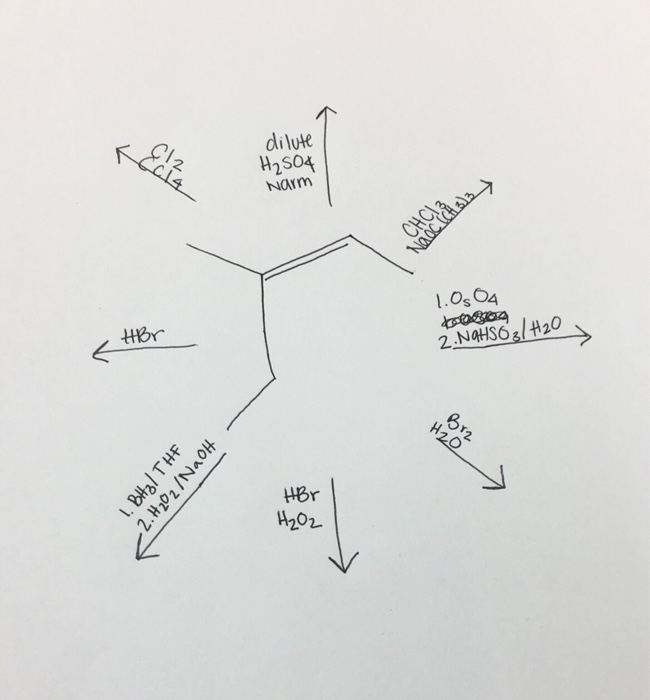 Cl2
CCl4
dilute
H2SO4
warm
CHCl3
NaOC(CH3)3
1. OsO4
2. NaHSO3/H2O
HBr
Br2
H2O
1. BH3/THF
2. H2O2/NaOH
HBr
H2O2